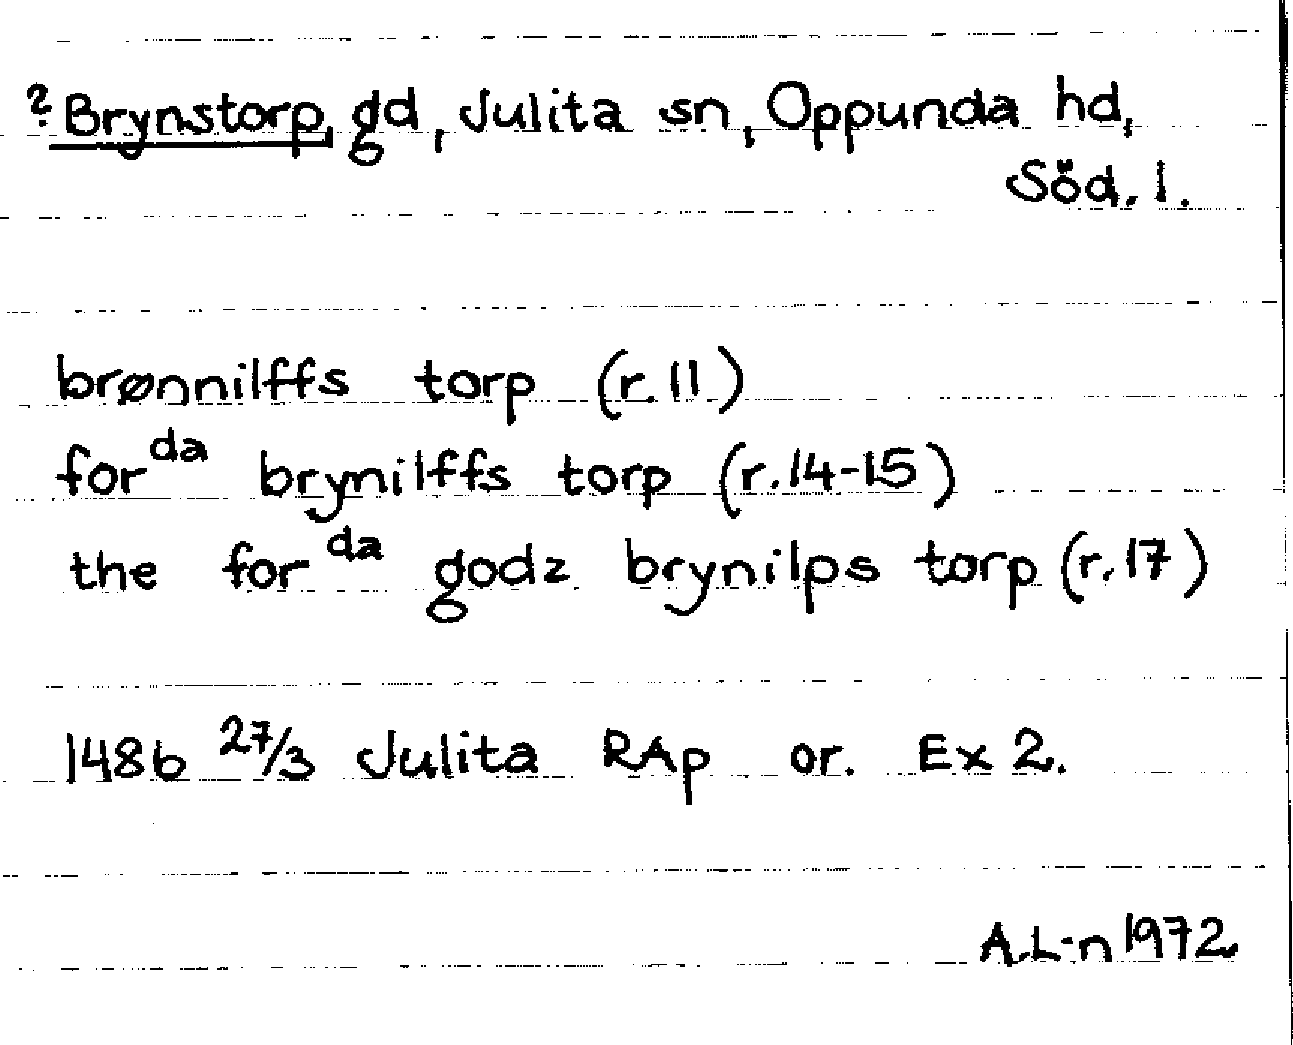 ? Brynstorp, gd, Julita sn, Oppunda hd,
Söd. l.
brønnilffs torp (r. 11)
for da brynilffs torp (r. 14-15)
the for da godz brynilps torp (r. 17)
1486 27/3 Julita RAp or. Ex 2.
A.L-n 1972